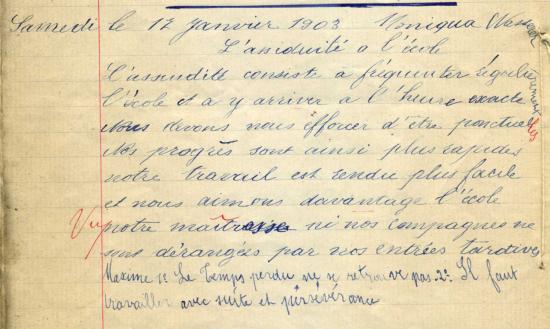 Samedi le 17 Janvier 1903 Moniqua
L'assiduité a l'école
L'assudité consiste à fréquenter régulièrement
l'école et a y arriver a l'heure exacte
Nous devons nous éfforcer d'être ponctuelles
Nos progrès sont ainsi plus rapides
notre travail est rendu plus facile
et nous aimons davantage l'école
Vu notre maîtresse ni nos compagnes ne
sont dérangées par nos entrées tardives
Maxime 1º Le Temps perdu ne se retrouve pas 2º Il faut
travailler avec suite et pérsévérance